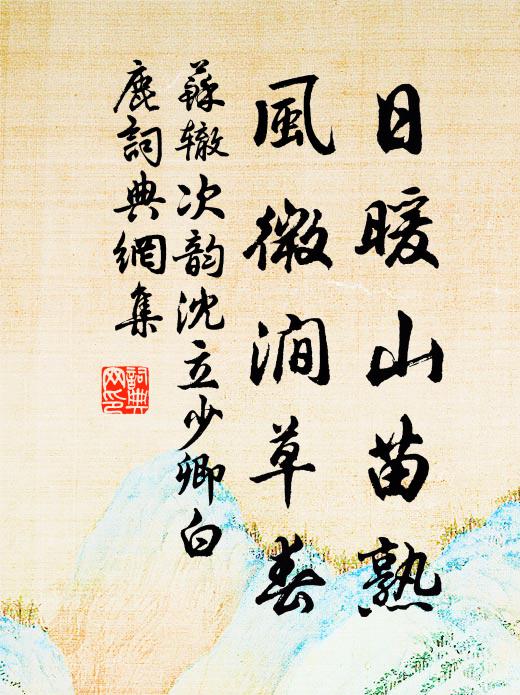 日暖山苗熟
風微澗草春
蘇辙次韵沈立少卿白
鹿詞典網集
詞典
网印